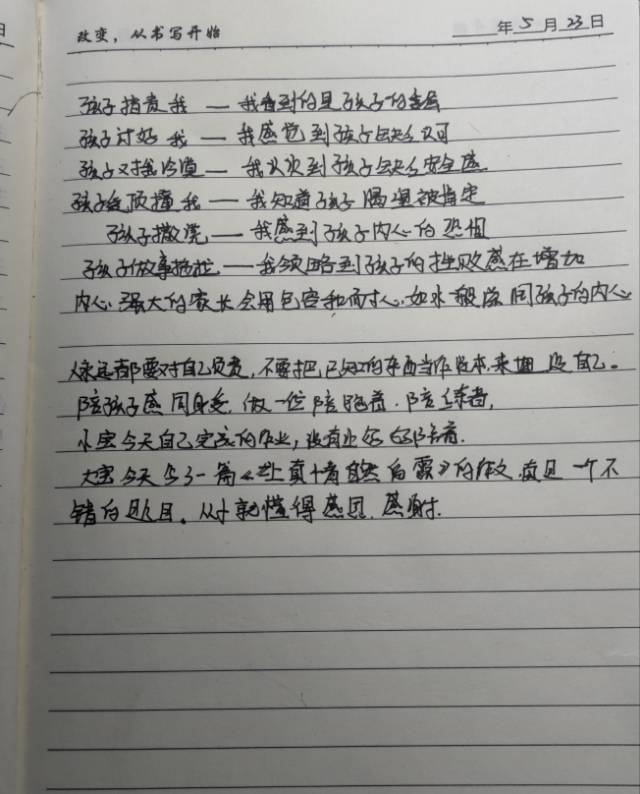 改变，从书写开始
年5月23日
孩子指责我 — 我看到的是孩子的委屈
孩子讨好我 — 我感觉到孩子缺乏认可
孩子对我冷漠 — 我认识到孩子缺乏安全感
孩子顶撞我 — 我知道孩子渴望被肯定
孩子撒谎 — 我感到孩子内心的恐惧
孩子做事拖拉 — 我领略到孩子的挫败感在增加
内心强大的家长会用包容和耐心.如水一般滋润孩子的内心
永远都要对自己负责，不要把已知的东西当作资本.来埋没自己。
陪孩子感同身受 做一位陪跑者.陪练者，
小宝今天自己完成的作业，没有
大宝今天写了一篇 的作文 真是一个不
错的题目。从小就懂得感恩.感谢.